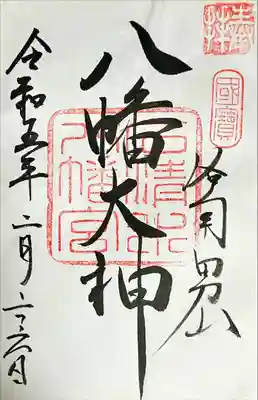 奉拝
國寶
男山
八幡大神
石清水
八幡宮
令和五年二月二十六日